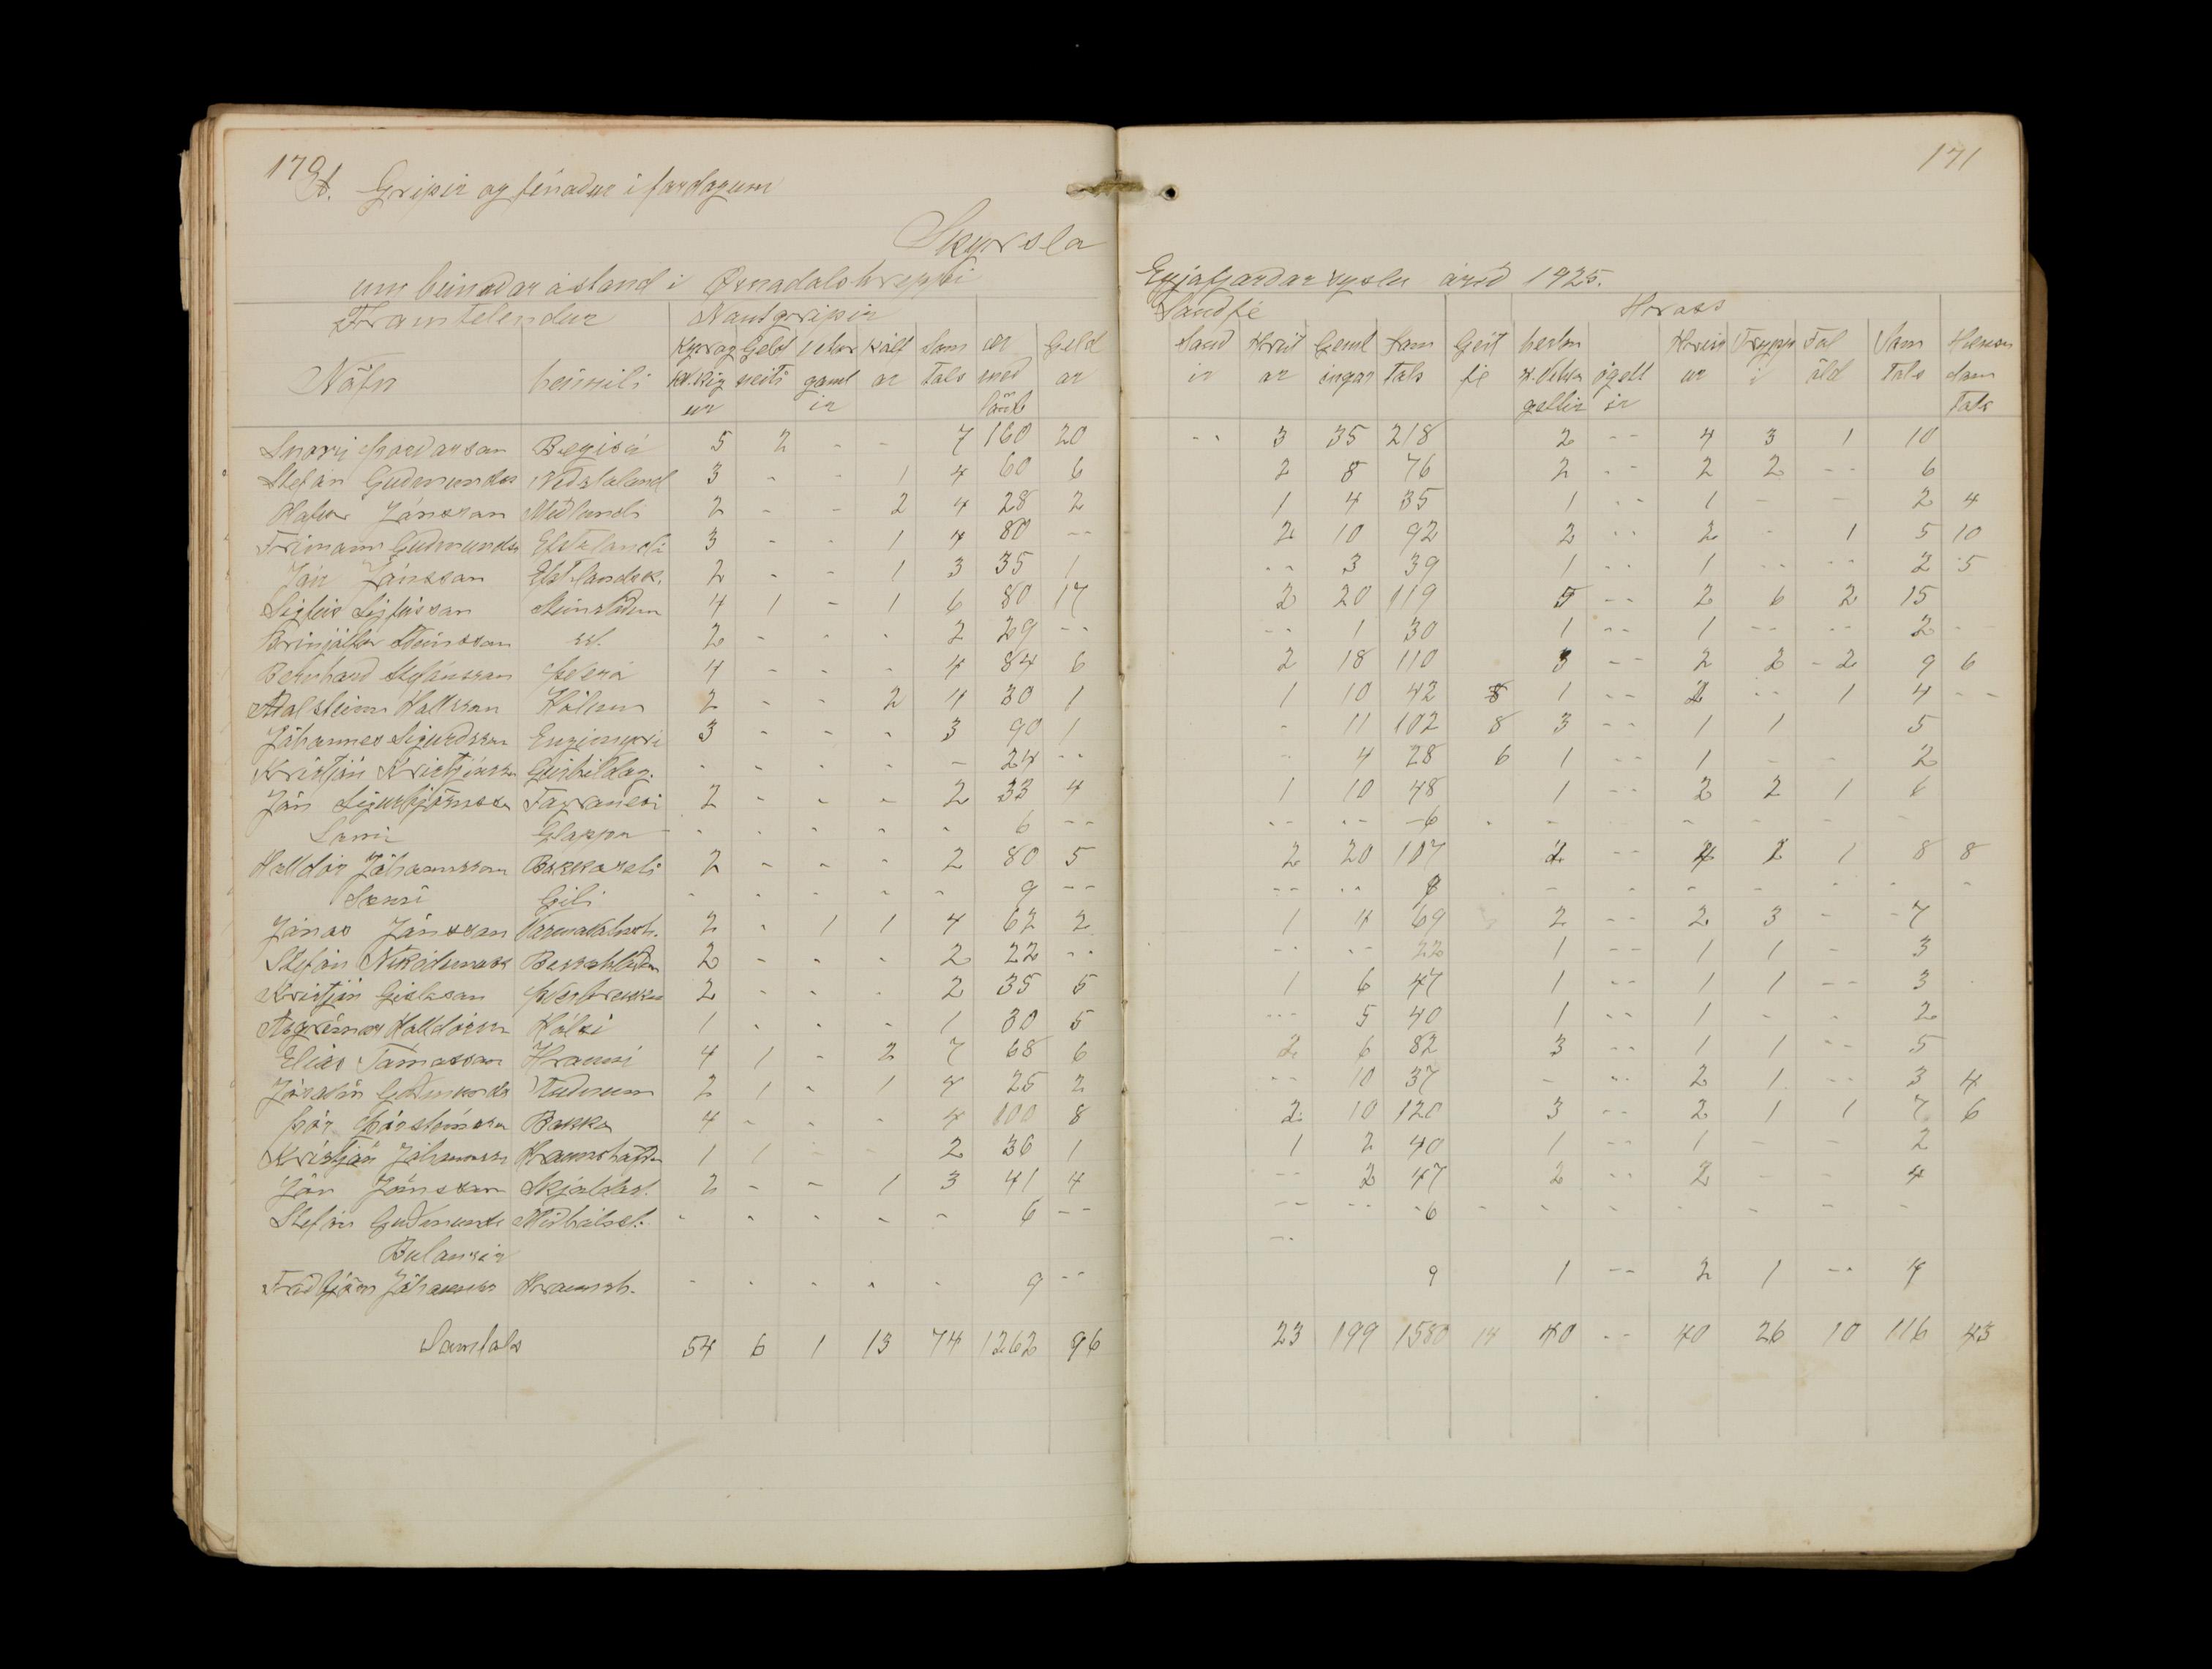 170
A. Gripir og fénaður í fardögum
Skyrsla
um búnaðar ástand í Öxnadalshreppi
Framteljendur Nautgripir
Nöfn heimili Kyr og kv.kig ur Geld neiti Vetur gaml ir Kálf ar Sam tals ær með lömb Geld ar
Snorri Þórdarson Bægisá 5 2 - - 7 160 20
Stefán Gudmunds Nedstaland 3 - - 1 4 60 6
Jónsson Midlandi 2 - - 2 4 28 2
Frimann Gudmunds Efstalandi 3 - - 1 4 80 --
Jón Jónsson Efstlandsk. 2 - - 1 3 35 1
Sigfús Sigfússon Steinstödum 4 1 - 1 6 80 17
Brinjólfur Sveinsson st. 2 - - - 2 29 --
Bernhard Stefánsson Þverá 4 - - - 4 84 6
Adalsteinn Hallsson Hólum 2 - - 2 4 30 1
Jóhannes Sigurdsson Engimyri 3 - - - 3 90 1
Kristján Kristjánsson Geirhildag. - - - - - 24 --
Jón Sigurbjörnsson Fagranesi 2 - - - 2 33 4
Sami Gloppu - - - - - 6 --
Halldór Jóhannsson Bakkaseli 2 - - - 2 80 5
Sami Gili - - - - - 9 --
Jónas Jónsson Varmavatnsh. 2 - 1 1 4 62 2
Stefán Nikódemuss Bessahlödum 2 - - - 2 22 --
Kristján Gíslason Þverbrekku 2 - - - 2 35 5
Asgrímur Halldórsson Hálsi 1 - - - 1 30 5
Elías Tómasson Hrauni 4 1 - 2 7 68 6
Jónatán Gudmunds Audnum 2 1 - 1 4 25 2
Þór Þórsteinsson Bakka 4 - - - 4 100 8
Kristján Jóhannsson Hraunshöfda 1 1 - - 2 36 1
Jón Jónsson Skjaldast. 2 - - 1 3 41 4
Stefán Gudmunds Midhálsst. - - - - - 6 --
Bulausir
Fridbjörn Jóhannss Hraunsh. - - - - - 9 --
Samtals 54 6 1 13 74 1262 96
171
Eyjafjardarsyslu árid 1925.
Saudfé Hross
Saud ir Hrút ar Geml ingar Sam tals Geit fé hestar 4. vetra geltir ógelt ir Hriss ur Tryppi Fol öld Sam tals Hænsn Sam tals
-- 3 35 218 2 -- 4 3 1 10
2 8 76 2 -- 2 2 -- 6
1 4 35 1 -- 1 - - 2 4
2 10 92 2 -- 2 - 1 5 10
-- 3 39 1 -- 1 -- -- 2 5
2 20 119 5 -- 2 6 2 15
-- 1 30 1 -- 1 -- -- 2 --
2 18 110 3 -- 2 2 - 2 9 6
1 10 42 8 1 -- 2 -- 1 4 --
- 11 102 8 3 -- 1 1 5
- 4 28 6 1 -- 1 - - 2
1 10 48 1 -- 2 2 1 6
-- -- -6 - - - - - -
2 20 107 2 -- 4 1 1 8 8
-- -- 9 - - - - - - -
1 4 69 2 -- 2 3 - -7
-- -- 22 1 -- 1 1 - 3
1 6 47 1 -- 1 1 -- 3
-- 5 40 1 -- 1 - - 2
2 6 82 3 -- 1 1 -- 5
-- 10 37 - -- 2 1 -- 3 4
2 10 120 3 -- 2 1 1 7 6
1 2 40 1 -- 1 - - 2
-- 2 47 2 -- 2 - - 4
-- -- -6 - - - - - - -
--
9 1 -- 2 1 -- 4
23 199 1580 14 40 -- 40 26 10 116 43